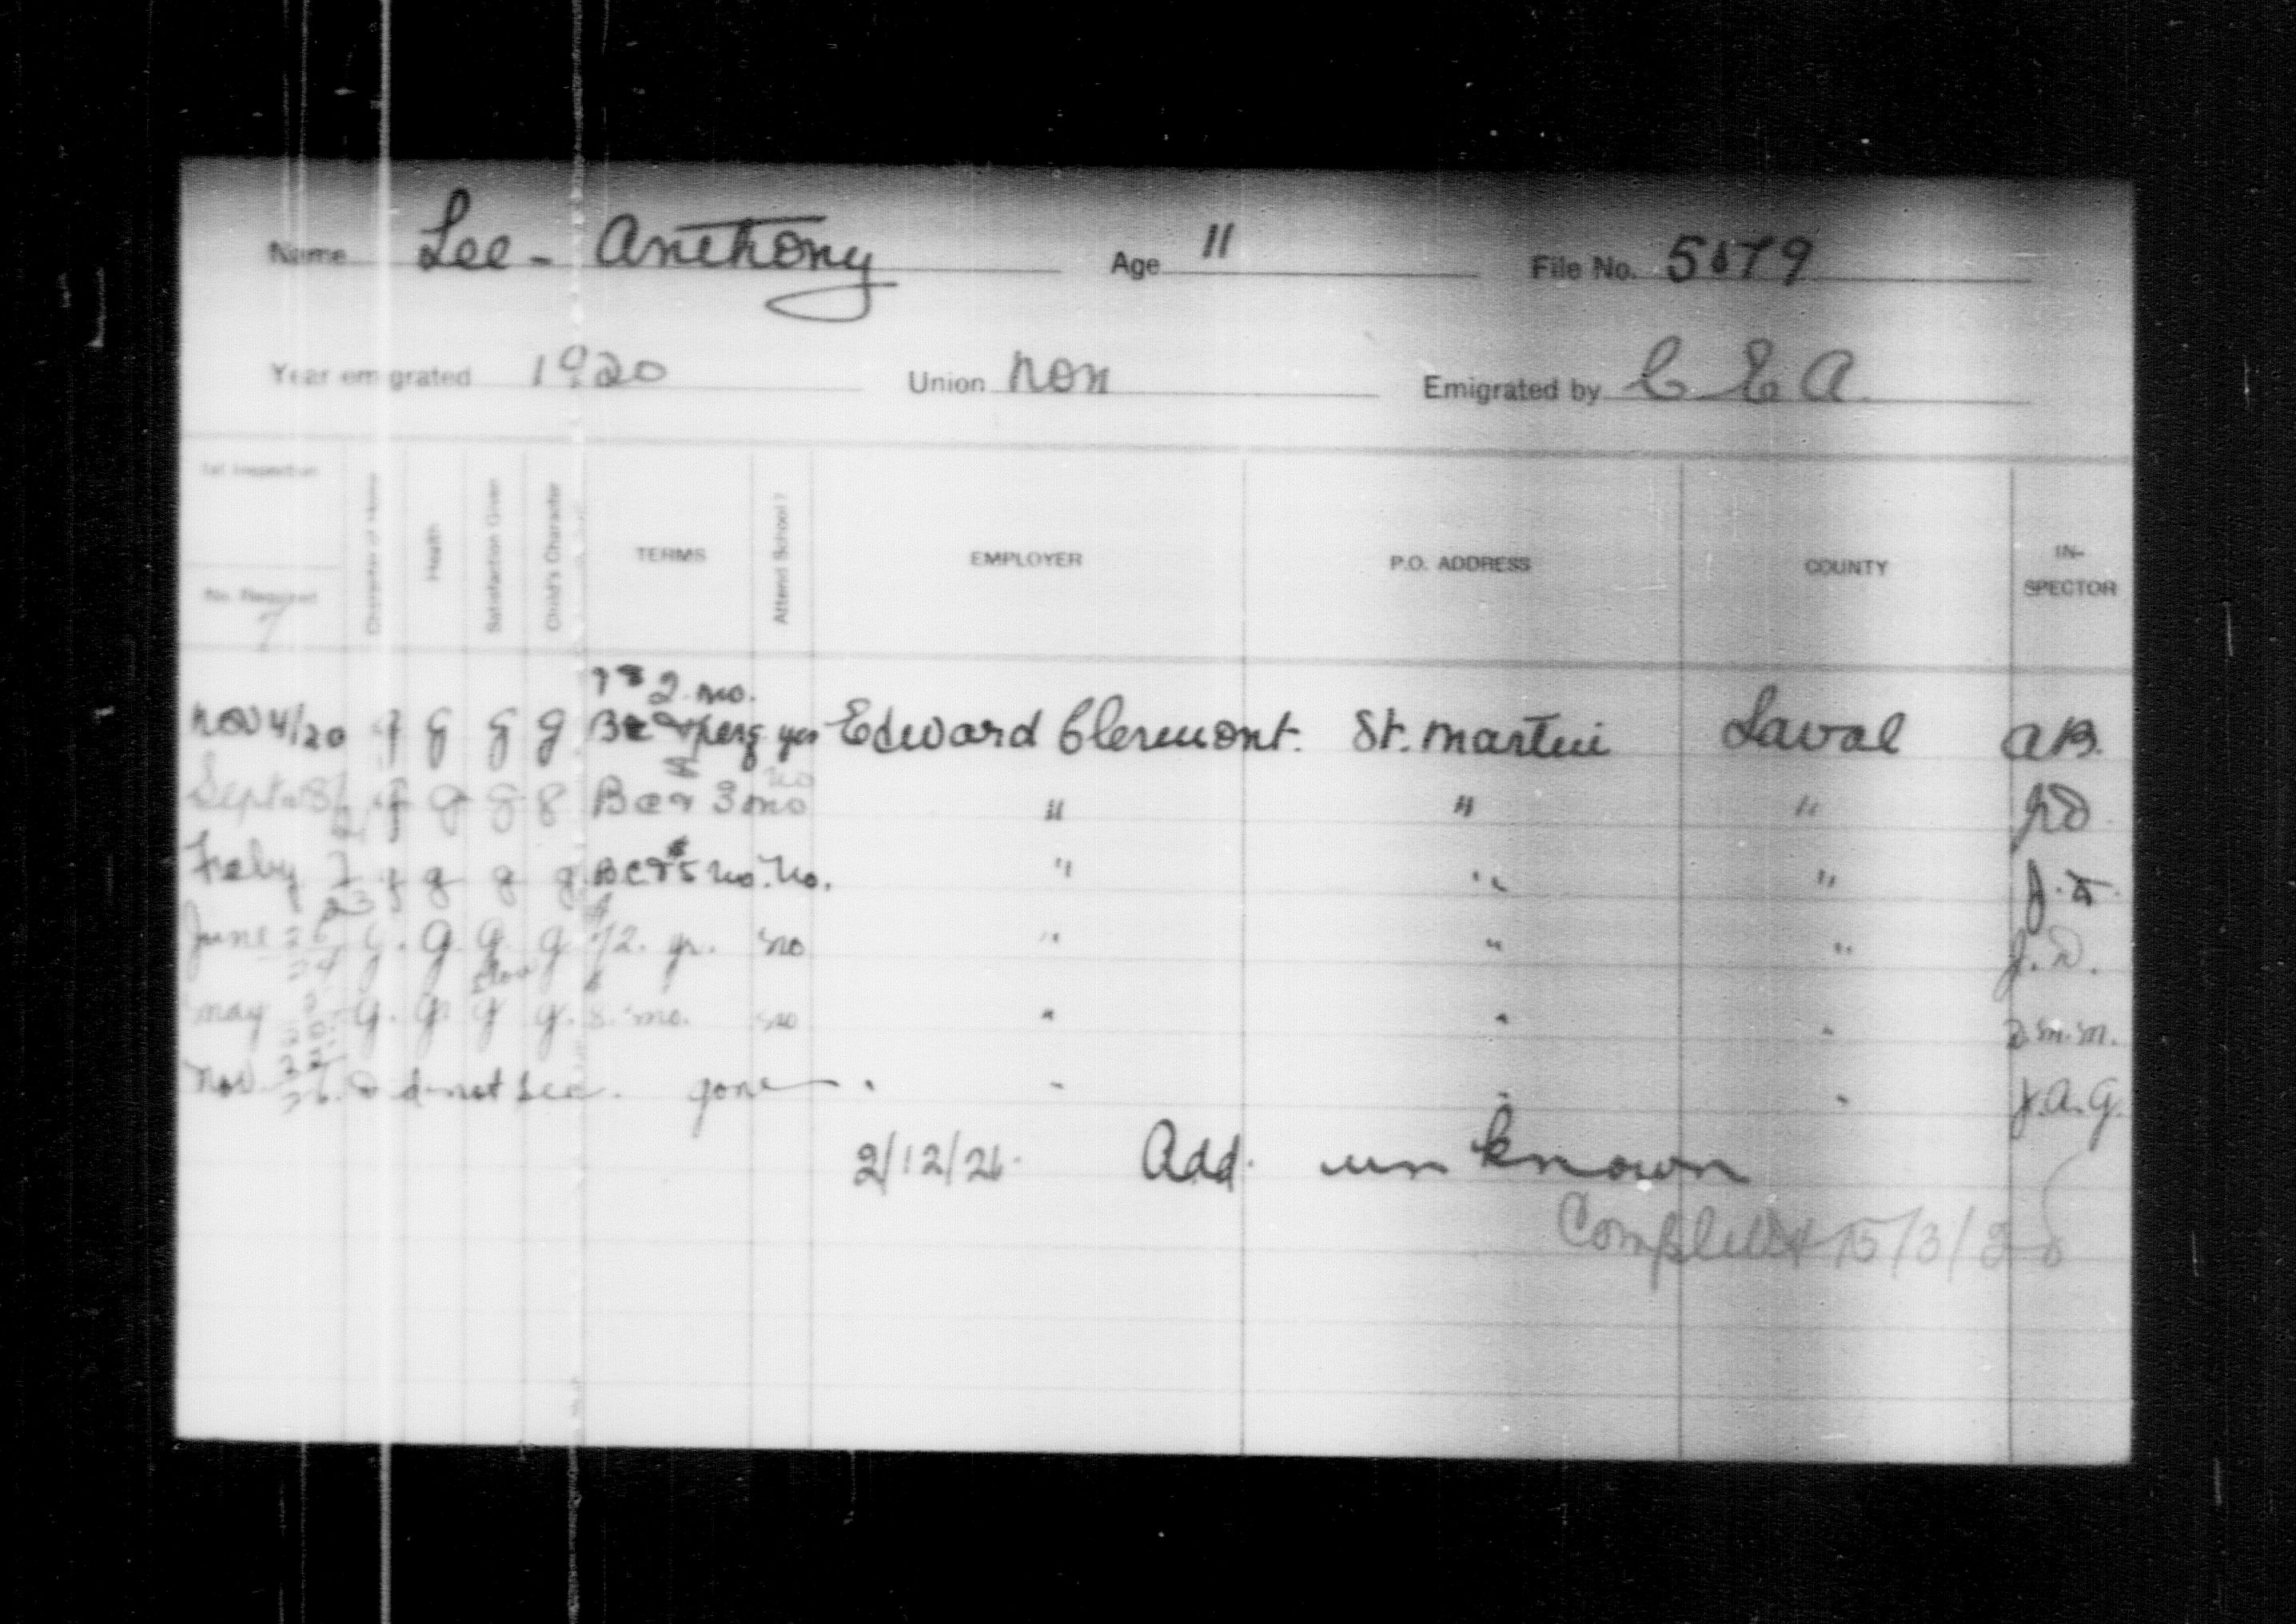 Name Lee - Anthony Age 11 File No. 5179
Year emigrated 1920 Union non Emigrated by C E A.
1st Inspection
No. Required
7
Character of Home
Health
Satisfaction Given
Child's Character
TERMS
Attend School?
EMPLOYER
P.O. ADDRESS
COUNTY
IN-
SPECTOR
2 mo.
Nov 4/20 g g g g yes Edward Clermont. St. Martin Laval AB.
no
Sept 8/ g g g g B c & 3 mo " " " JD
Feby 7 g g g g B c & $5 mo. no. " " " J.D.
23
June 26 g. g. g. g. 72. yr. no " " " J.D.
24
May g. g. g g. 8. mo. no " " " m.m.
Nov. 22 Did not see. gone. " " " J.A.G.
26
2/12/26. Add. unknown
Completed 15/3/